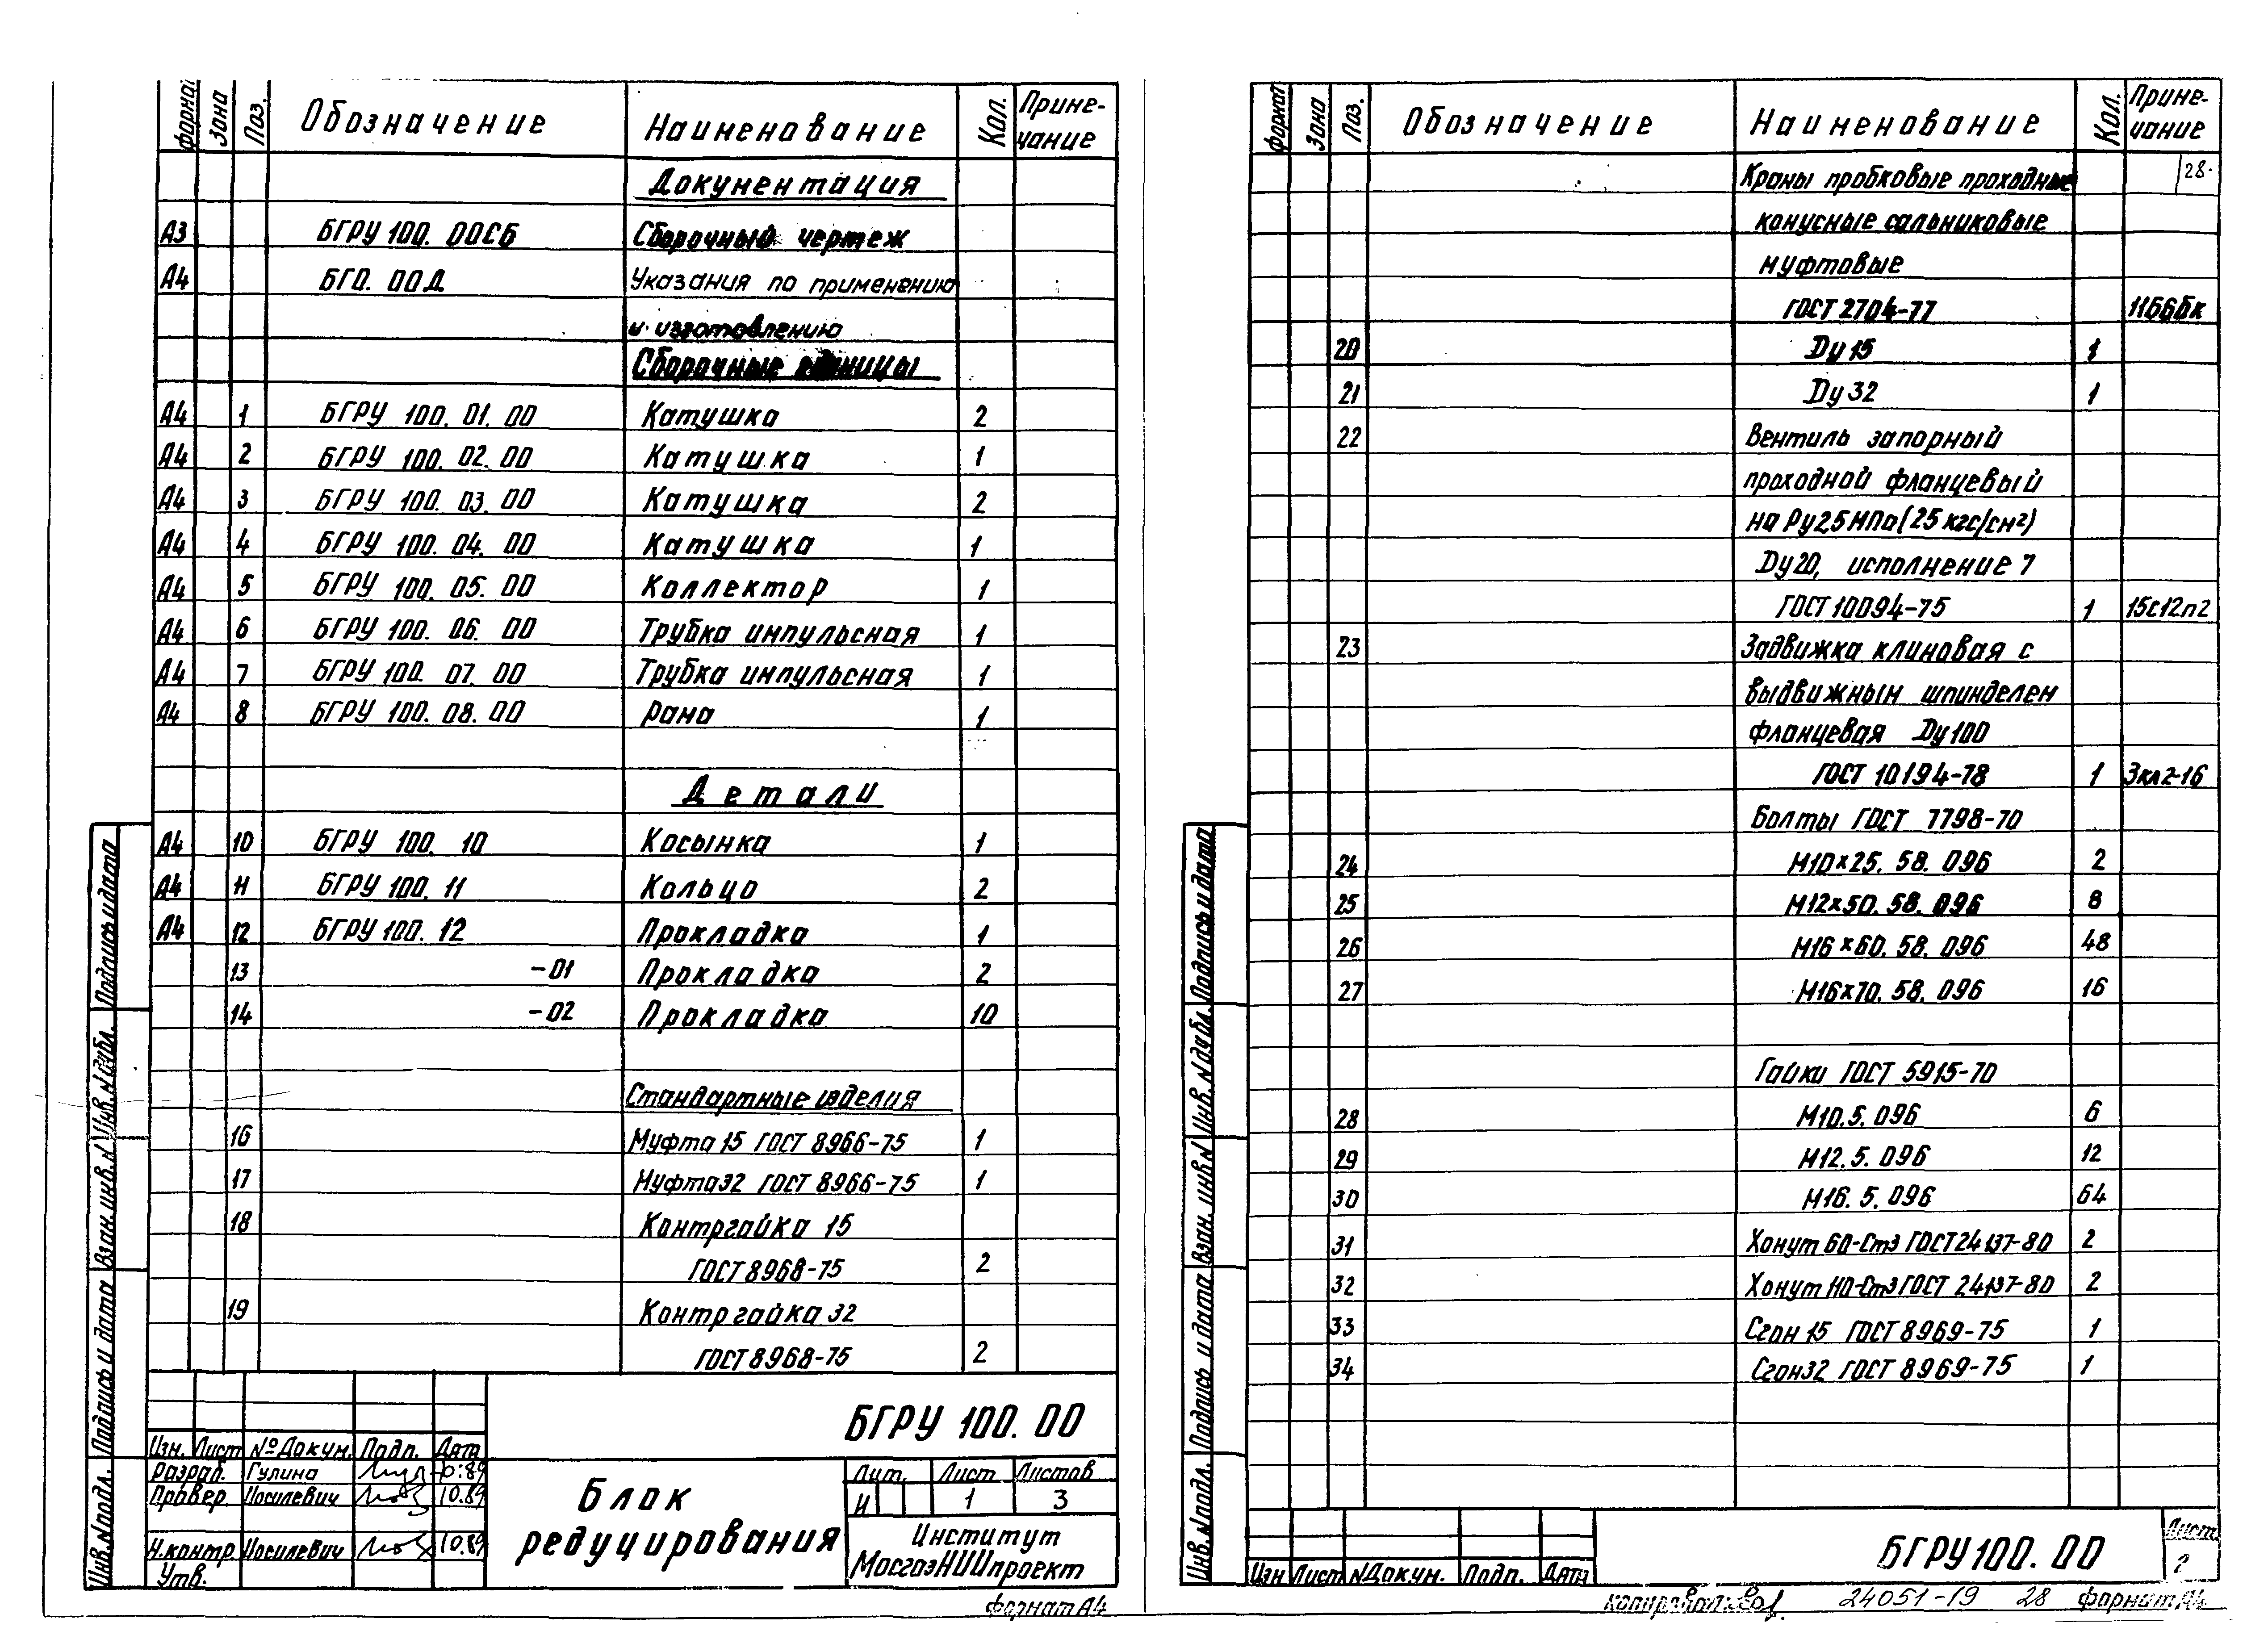 Формат Зона Поз. Обозначение Наименование Кол. Примечание
Документация
А3 БГРУ 100. 00СБ Сборочный чертеж
А4 БГО. 00Д Указания по применению
и изготовлению
Сборочные единицы
А4 1 БГРУ 100. 01. 00 Катушка 2
А4 2 БГРУ 100. 02. 00 Катушка 1
А4 3 БГРУ 100. 03. 00 Катушка 2
А4 4 БГРУ 100. 04. 00 Катушка 1
А4 5 БГРУ 100. 05. 00 Коллектор 1
А4 6 БГРУ 100. 06. 00 Трубка импульсная 1
А4 7 БГРУ 100. 07. 00 Трубка импульсная 1
А4 8 БГРУ 100. 08. 00 Рама 1
Детали
А4 10 БГРУ 100. 10 Косынка 1
А4 11 БГРУ 100. 11 Кольцо 2
А4 12 БГРУ 100. 12 Прокладка 1
13 -01 Прокладка 2
14 -02 Прокладка 10
Стандартные изделия
16 Муфта 15 ГОСТ 8966-75 1
17 Муфта 32 ГОСТ 8966-75 1
18 Контргайка 15
ГОСТ 8968-75 2
19 Контргайка 32
ГОСТ 8968-75 2
Подпись и дата
Инв. N дубл.
Взам. инв. N
Подпись и дата
Инв. N подл.
БГРУ 100. 00
Изм. Лист № Докум. Подп. Дата
Разраб. Гулина 10.89
Провер. Иосилевич 10.89
Н.контр. Иосилевич 10.89
Утв.
Блок
редуцирования
Лит. Лист Листов
И 1 3
Институт
МосгазНИИпроект
Формат А4
Формат Зона Поз. Обозначение Наименование Кол. Примечание
28
Краны пробковые проходные
конусные сальниковые
муфтовые
ГОСТ 2704-77 11Б6бк
20 Dу 15 1
21 Dу 32 1
22 Вентиль запорный
проходной фланцевый
на Ру 25 МПа (25 кгс/см²)
Dу 20, исполнение 7
ГОСТ 10094-75 1 15с12п2
23 Задвижка клиновая с
выдвижным шпинделем
фланцевая Dу 100
ГОСТ 10194-78 1 3кл2-16
Болты ГОСТ 7798-70
24 М10х25. 58. 096 2
25 М12х50. 58. 096 8
26 М16х60. 58. 096 48
27 М16х70. 58. 096 16
Гайки ГОСТ 5915-70
28 М10. 5. 096 6
29 М12. 5. 096 12
30 М16. 5. 096 64
31 Хомут 60-Ст3 ГОСТ 24137-80 2
32 Хомут 110-Ст3 ГОСТ 24137-80 2
33 Сгон 15 ГОСТ 8969-75 1
34 Сгон 32 ГОСТ 8969-75 1
Подпись и дата
Инв. N дубл.
Взам. инв. N
Подпись и дата
Инв. N подл.
Изм Лист N Докум. Подп. Дата
БГРУ 100. 00
Лист
2
Копировал: 24051-19 28 Формат А4